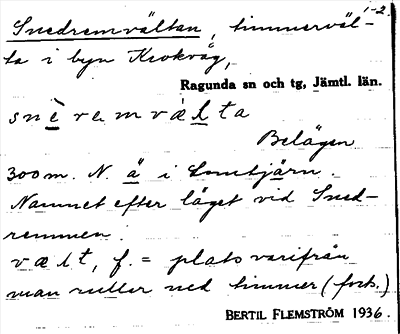 1-2.
Snedremvältan, timmerväl-
ta i byn Krokvåg,
Ragunda sn och tg, Jämtl. län.
snèremvälta
Belägen
300 m. N ä i Lomtjärn.
Namnet efter läget vid Sned-
remmen.
vælt, f. = plats varifrån
man rullar ned timmer (forts.)
BERTIL FLEMSTRÖM 1936.